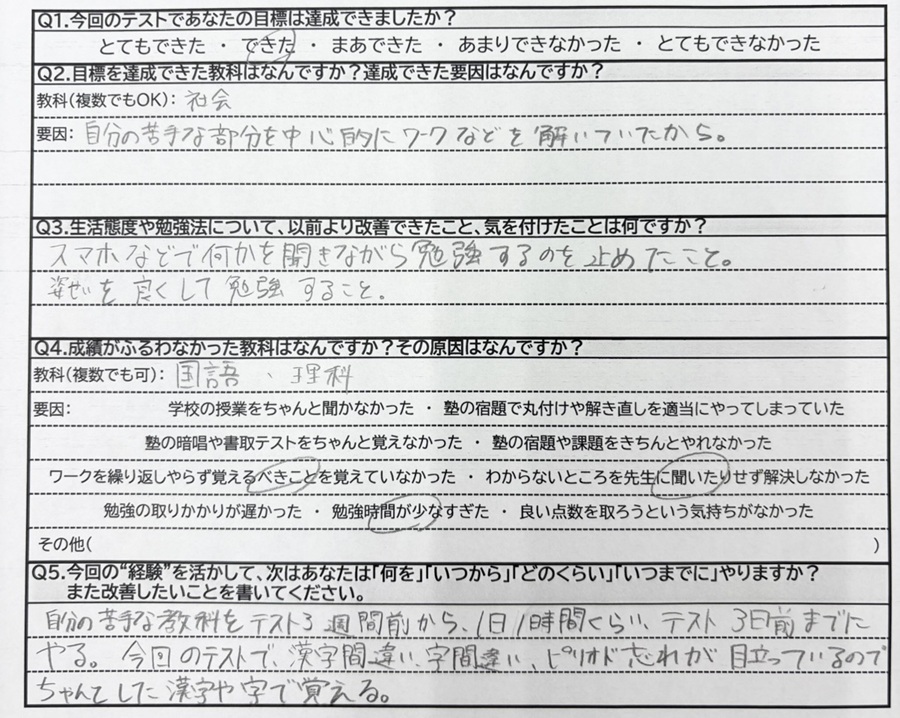 Q1.今回のテストであなたの目標は達成できましたか？
とてもできた ・ できた ・ まあできた ・ あまりできなかった ・ とてもできなかった
Q2.目標を達成できた教科はなんですか？達成できた要因はなんですか？
教科(複数でもOK)： 社会
要因： 自分の苦手な部分を中心的にワークなどを解いていたから。
Q3.生活態度や勉強法について、以前より改善できたこと、気を付けたことは何ですか？
スマホなどで何かを聞きながら勉強するのを止めたこと。
姿ぜを良くして勉強すること。
Q4.成績がふるわなかった教科はなんですか？その原因はなんですか？
教科(複数でも可)： 国語 、 理科
要因： 学校の授業をちゃんと聞かなかった ・ 塾の宿題で丸付けや解き直しを適当にやってしまっていた
塾の暗唱や書取テストをちゃんと覚えなかった ・ 塾の宿題や課題をきちんとやれなかった
ワークを繰り返しやらず覚えるべきことを覚えていなかった ・ わからないところを先生に聞いたりせず解決しなかった
勉強の取りかかりが遅かった ・ 勉強時間が少なすぎた ・ 良い点数を取ろうという気持ちがなかった
その他( )
Q5.今回の“経験”を活かして、次はあなたは「何を」「いつから」「どのくらい」「いつまでに」やりますか？
また改善したいことを書いてください。
自分の苦手な教科をテスト3週間前から、1日1時間くらい、テスト3日前までに
やる。今回のテストで、漢字間違い、字間違い、ピリオド忘れが目立っているので
ちゃんとした漢字や字で覚える。